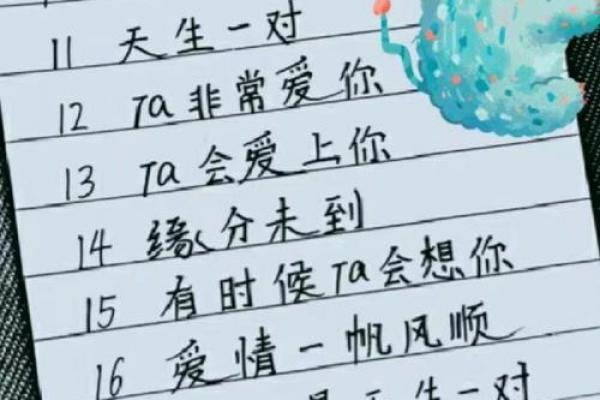 11 天生一对
12 Ta非常爱你
13 Ta会爱上你
14 缘分未到
15 有时候Ta会想你
16 爱情一帆风顺
天生一对